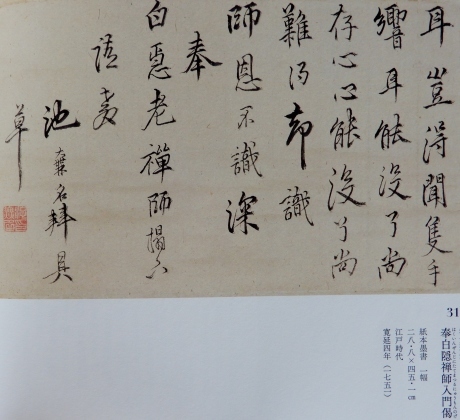 耳豈得聞隻手
響耳能沒了尚
存心心能沒了尚
難得却識
師恩不識深
奉
白隱老禪師榻下
請教
池無名拜具
草
31
奉白隠禅師入門偈
紙本墨書 一幅
二八・八×四五・一㎝
江戸時代
寛延四年(一七五一)